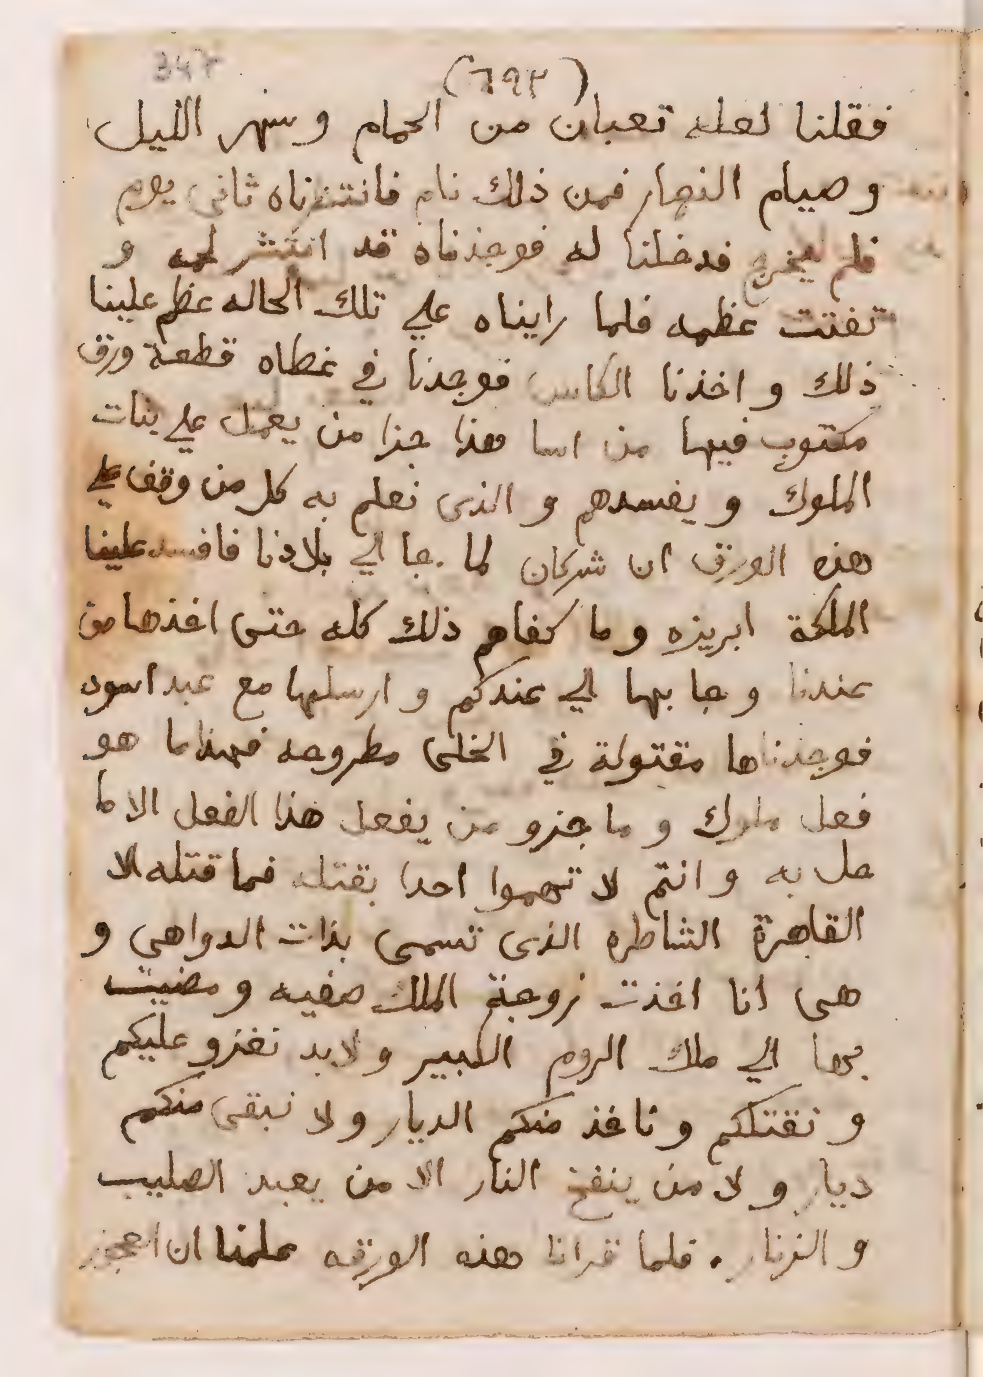 347
(٦٩٣)
فقلنا لعله تعبان من الحمام و سهر الليل
و صيام النهار فمن ذلك نام فانتظرناه ثاني يوم
فلم يخرج فدخلنا له فوجدناه قد انتشر لحمه و
تفتت عظمه فلما رايناه علي تلك الحاله عظم علينا
ذلك و اخذنا الكاس فوجدنا في غطاه قطعة ورق
مكتوب فيها من اسا هذا جزا من يعمل علي بنات
الملوك و يفسدهم و الذى نعلم به كل من وقف علي
هذه الورق ان شركان لما جا الي بلادنا فافسد علينا
الملكة ابريزه و ما كفاهم ذلك كله حتى اخذها من
عندنا و جا بها الي عندكم و ارسلها مع عبد اسود
فوجدناها مقتولة في الخلى مطروحه فهذا ما هو
فعل ملوك و ما جزو من يفعل هذا الفعل الا ما
حل به و انتم لا تهموا احدا بقتله فما قتله الا
القاهرة الشاطره الذى تسمى بذات الدواهى و
هى انا اخذت زوجة الملك صفيه و مضيت
بها الي ملك الروم الكبير و لابد نغزو عليكم
و نقتلكم و ناخذ منكم الديار و لا نبقى منكم
ديار و لا من ينفخ النار الا من يعبد الصليب
و الزنار . فلما قرانا هذه الورقه علمنا ان العجوز